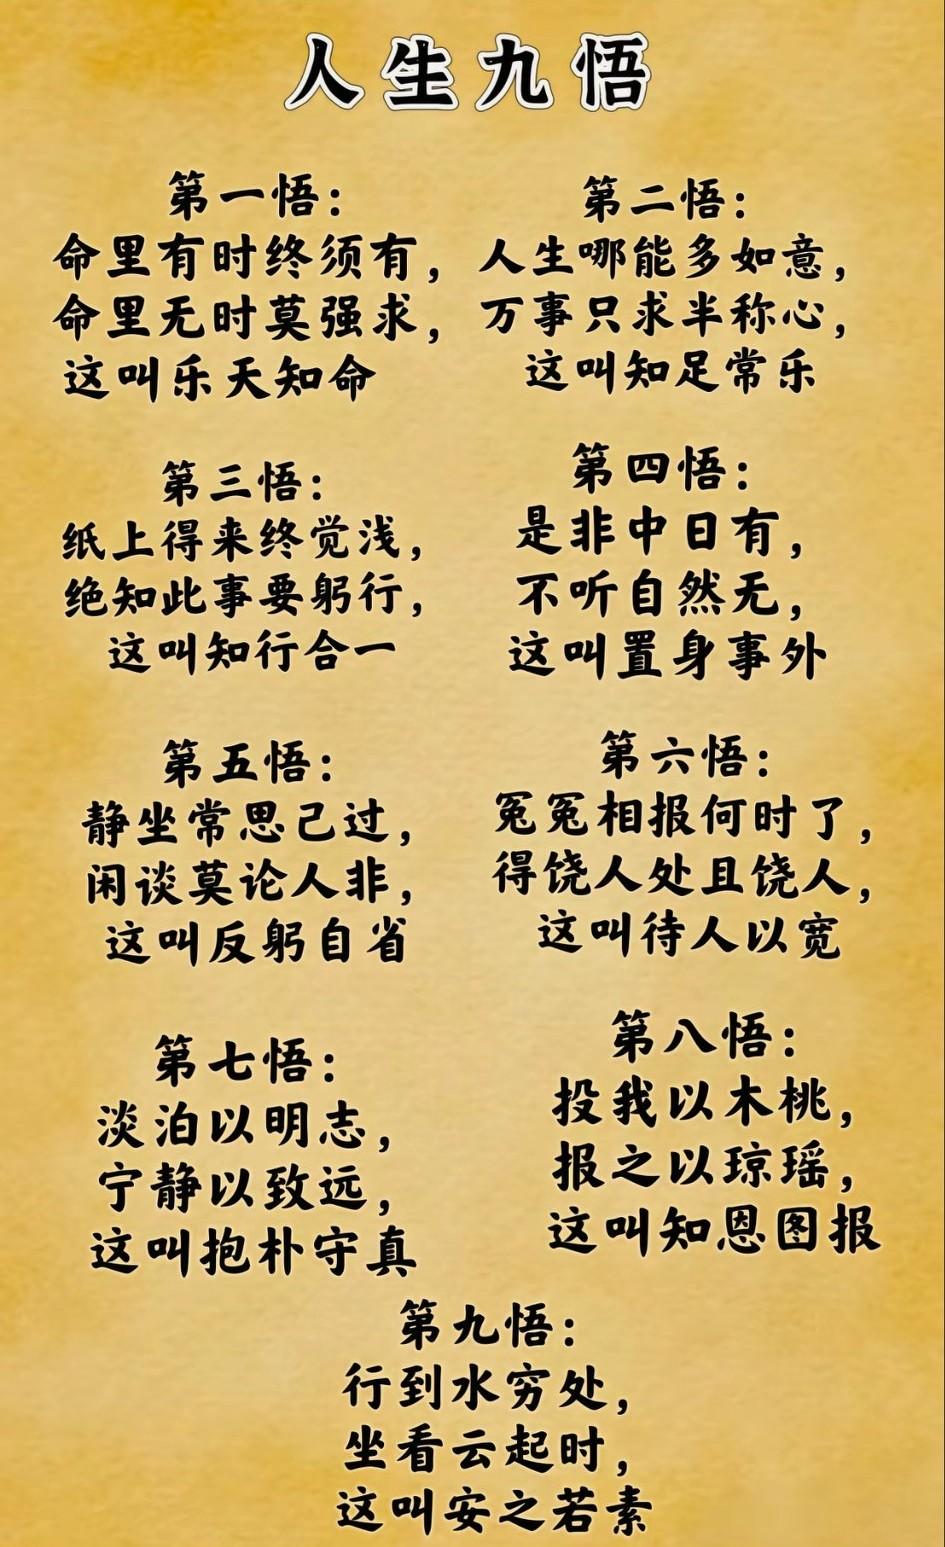 人生九悟
第一悟：
命里有时终须有，
命里无时莫强求，
这叫乐天知命
第二悟：
人生哪能多如意，
万事只求半称心，
这叫知足常乐
第三悟：
纸上得来终觉浅，
绝知此事要躬行，
这叫知行合一
第四悟：
是非中日有，
不听自然无，
这叫置身事外
第五悟：
静坐常思己过，
闲谈莫论人非，
这叫反躬自省
第六悟：
冤冤相报何时了，
得饶人处且饶人，
这叫待人以宽
第七悟：
淡泊以明志，
宁静以致远，
这叫抱朴守真
第八悟：
投我以木桃，
报之以琼瑶，
这叫知恩图报
第九悟：
行到水穷处，
坐看云起时，
这叫安之若素